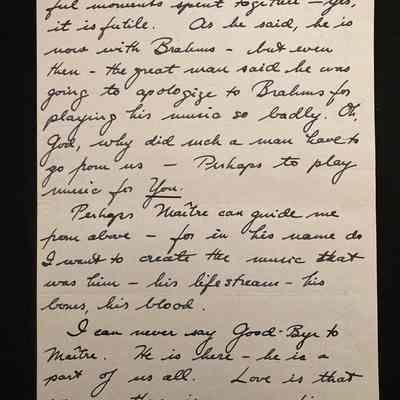 ful moments spent together – yes,
it is futile. As he said, he is
now with Brahms – but even
then – the great man said he was
going to apologize to Brahms for
playing his music so badly. Oh,
God, why did such a man have to
go from us – Perhaps to play
music for You.
Perhaps Maître can guide me
from above – for in his name do
I want to create the music that
was him – his lifestream – his
bones, his blood.
I can never say Good-Bye to
Maître. He is here – he is a
part of us all. Love is that